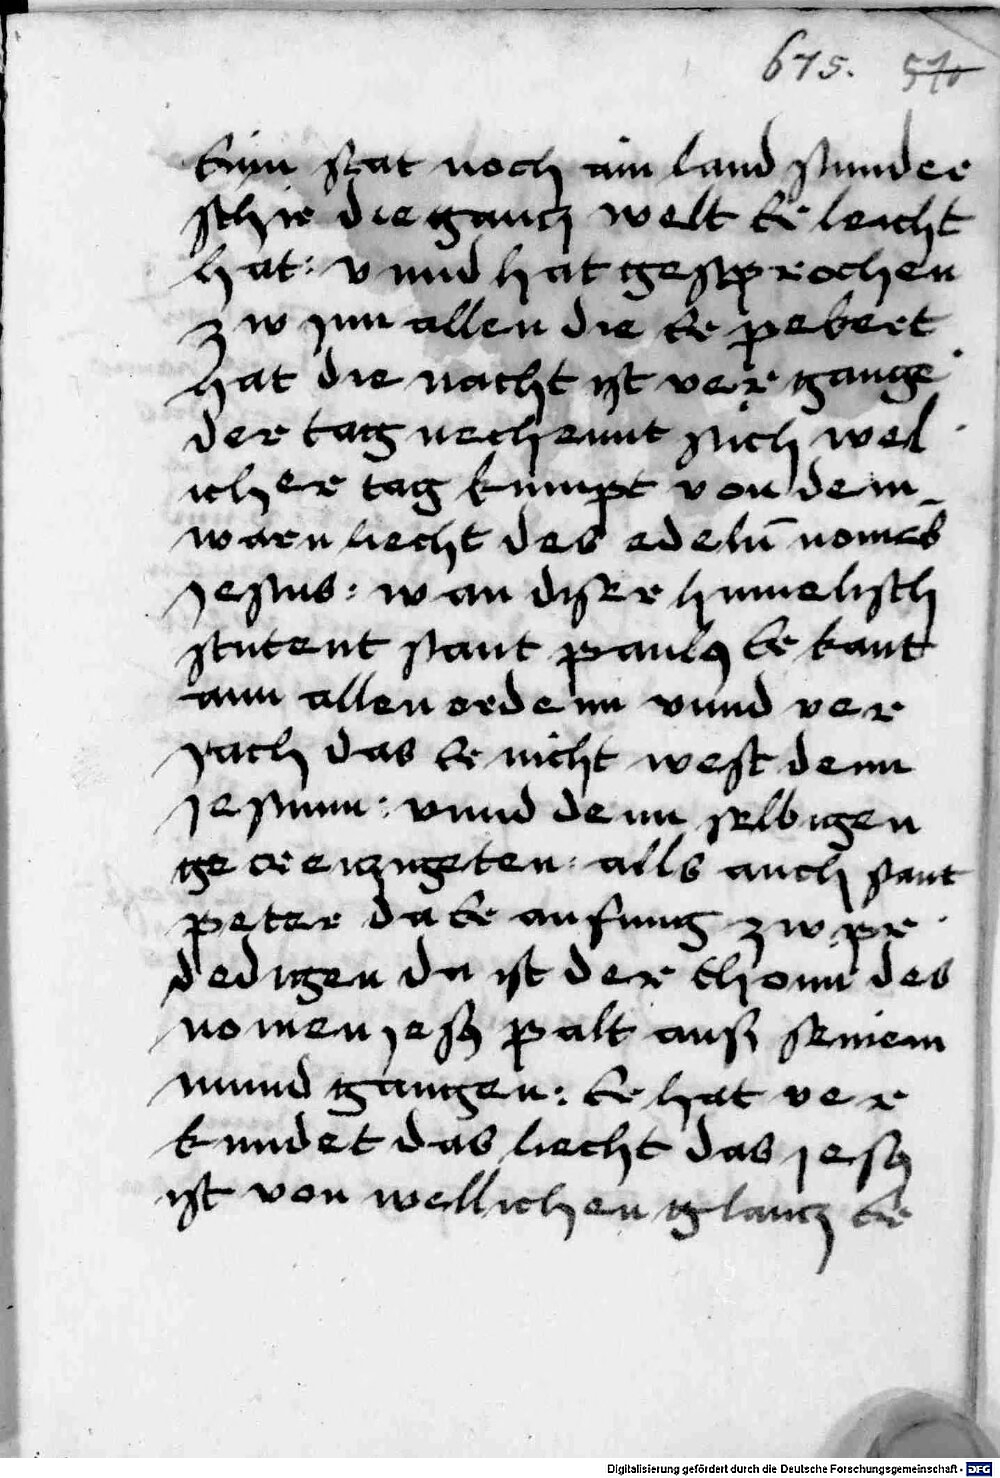 675. 570
kain stat noch ain land sunder
schir die gancz welt er leicht
hat: vnnd hat gesprochen
zw inn allen die er pekert
hat die nacht ist ver gange
der tag nechennt sich wel
icher tag kumpt von dem
warn liecht des edeln̄ nomes
Jesus: wan diser himelisch
stutent sant paulꝰ er kant
ann allen ordenn vnnd ver
jach das er nicht west denn
jesumm: vnnd denn selbigen
gecreiczigeten: alls auch sant
peter da er anfung zw pr
dedigen da ist der thonn des
nomen jesꝰ palt auß seinem
mund gangen: er hat ver
kundet das liecht das jesꝰ
ist von wellichen glancz er
Digitalisierung gefördert durch die Deutsche Forschungsgemeinschaft - DFG